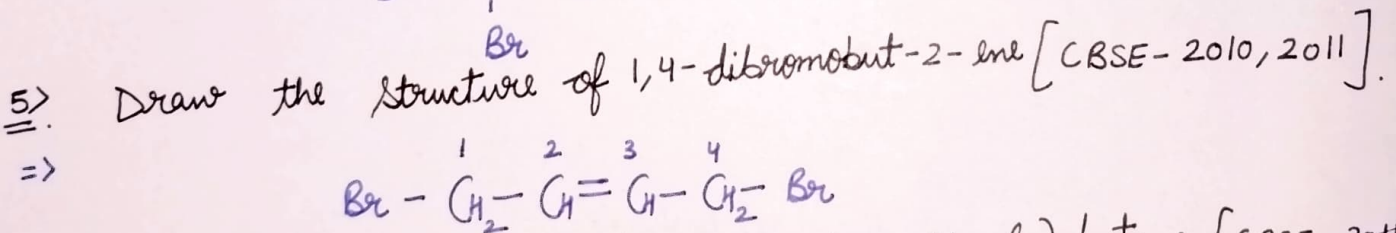 Br
5> Draw the structure of 1,4-dibromobut-2-ene [CBSE-2010, 2011].
=>
1 2 3 4
Br - CH2 - CH = CH - CH2 - Br